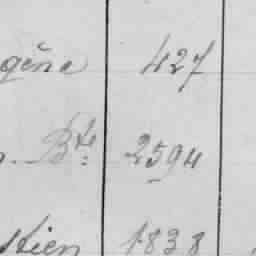 gêna 427
Bte: 2594
stien 1838